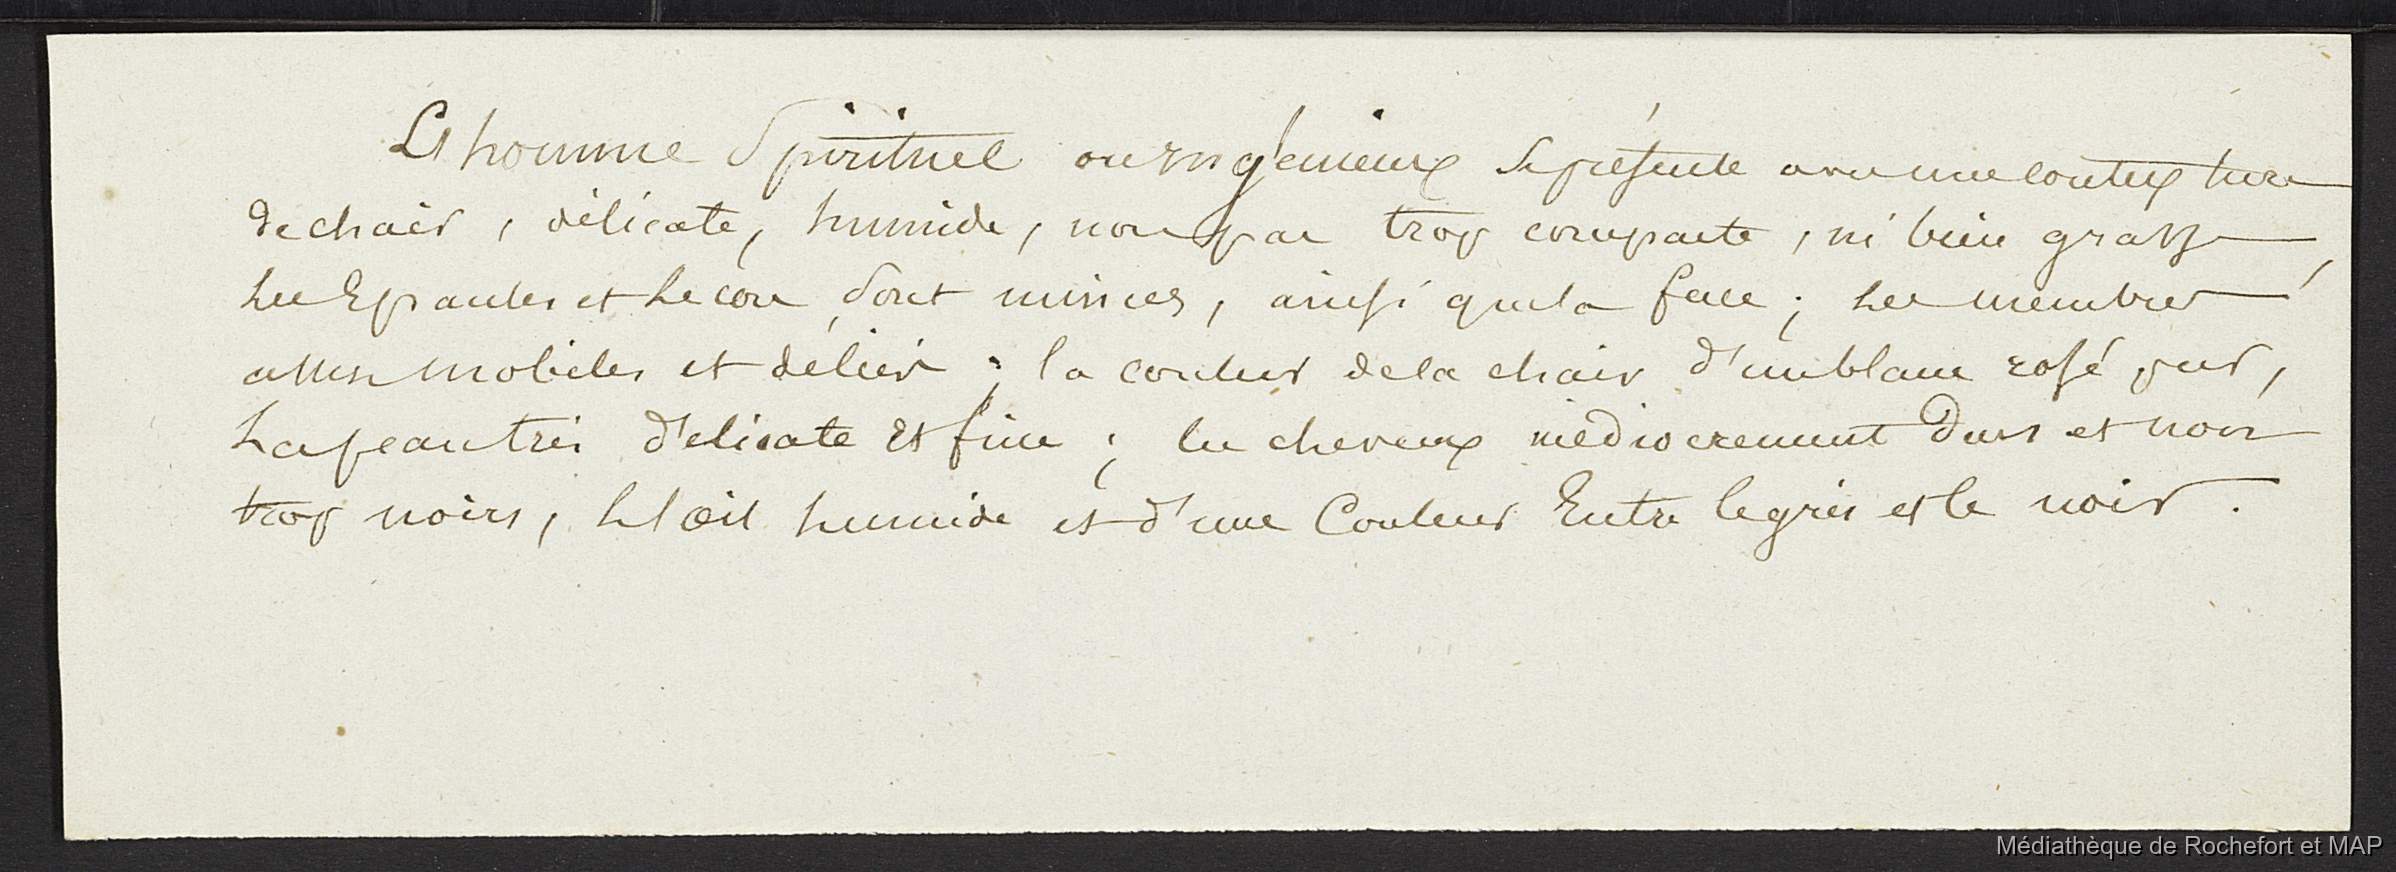 L'homme Spirituel ou ingénieux se présente avec une contexture
de chair, délicate, humide, non par trop compacte, ni bien grasse,
les Epaules et le cou sont minces, ainsi que la face; les membres
assez mobiles et déliés; la couleur de la chair d'un blanc rosé pur,
la peau très délicate et fine; les cheveux médiocrement durs et non
trop noirs, l'œil humide et d'une Couleur Entre le gris et le noir.
Médiathèque de Rochefort et MAP